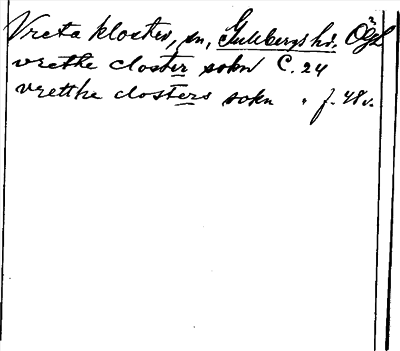 Vreta kloster, sn, Gullbergs hd. Ögl
vrethe closter sokn C. 24
vretthe closters sokn " f. 48v.